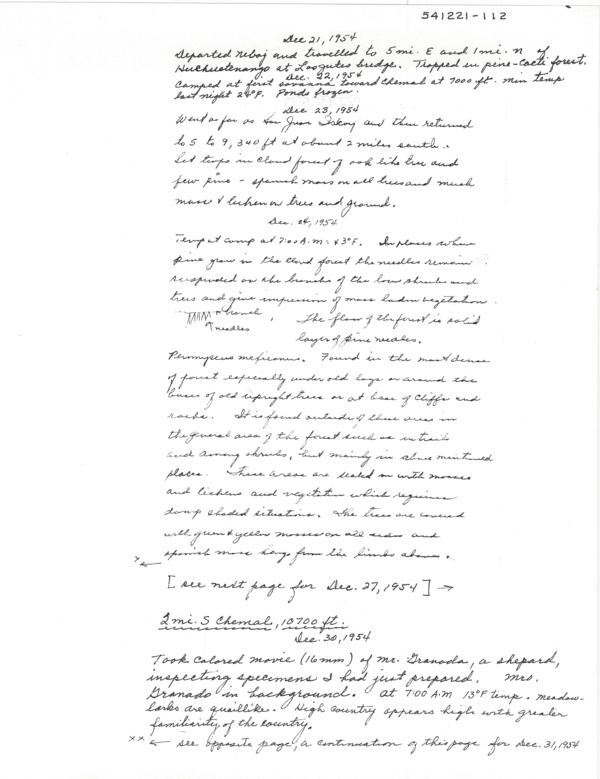 541221-112
Dec 21, 1954
Departed Nebaj and travelled to 5 mi. E and 1 mi. N of
Huehuetenango at Los bridge. Trapped in pine-cacti forest.
Dec. 22, 1954
Camped at first savanna toward Chemal at 7000 ft. Min temp
last night 24°F. Ponds frozen.
Dec 23, 1954
Went as far as San Juan Ixkoy and then returned
to 5 to 9,340 ft at about 2 miles south.
Set traps in cloud forest of oak like tree and
few pine - spanish moss on all trees and much
moss & lichen on trees and ground.
Dec. 24, 1954
Temp at camp at 7:00 A.M: 43°F. In places where
pine grow in the cloud forest the needles remain
suspended on the branches of the low shrubs and
trees and give impression of moss laden vegetation.
branch
needles
The floor of the forest is solid
layer of pine needles.
Peromyscus mexicanus. Found in the most dense
of forest especially under old logs or around the
bases of old upright trees or at base of cliffs and
rocks. It is found outside of these areas in
the general area of the forest such as in trails
and among shrubs, but mainly in above mentioned
places. These areas are sealed in with mosses
and lichens and vegetation which requires
damp shaded situations. The trees are covered
with green & yellow mosses on all sides and
spanish moss hangs from the limbs above.
x ←
[see next page for Dec. 27, 1954] →
2 mi. S Chemal, 10700 ft.
Dec. 30, 1954
Took colored movie (16mm) of Mr. Granada, a shepard,
inspecting specimens I had just prepared. Mrs.
Granado in background. At 7:00 A.M 13°F temp. Meadow-
larks are quaillike. High country appears high with greater
familiarity of the country.
xx ← see opposite page, a continuation of this page for Dec. 31, 1954